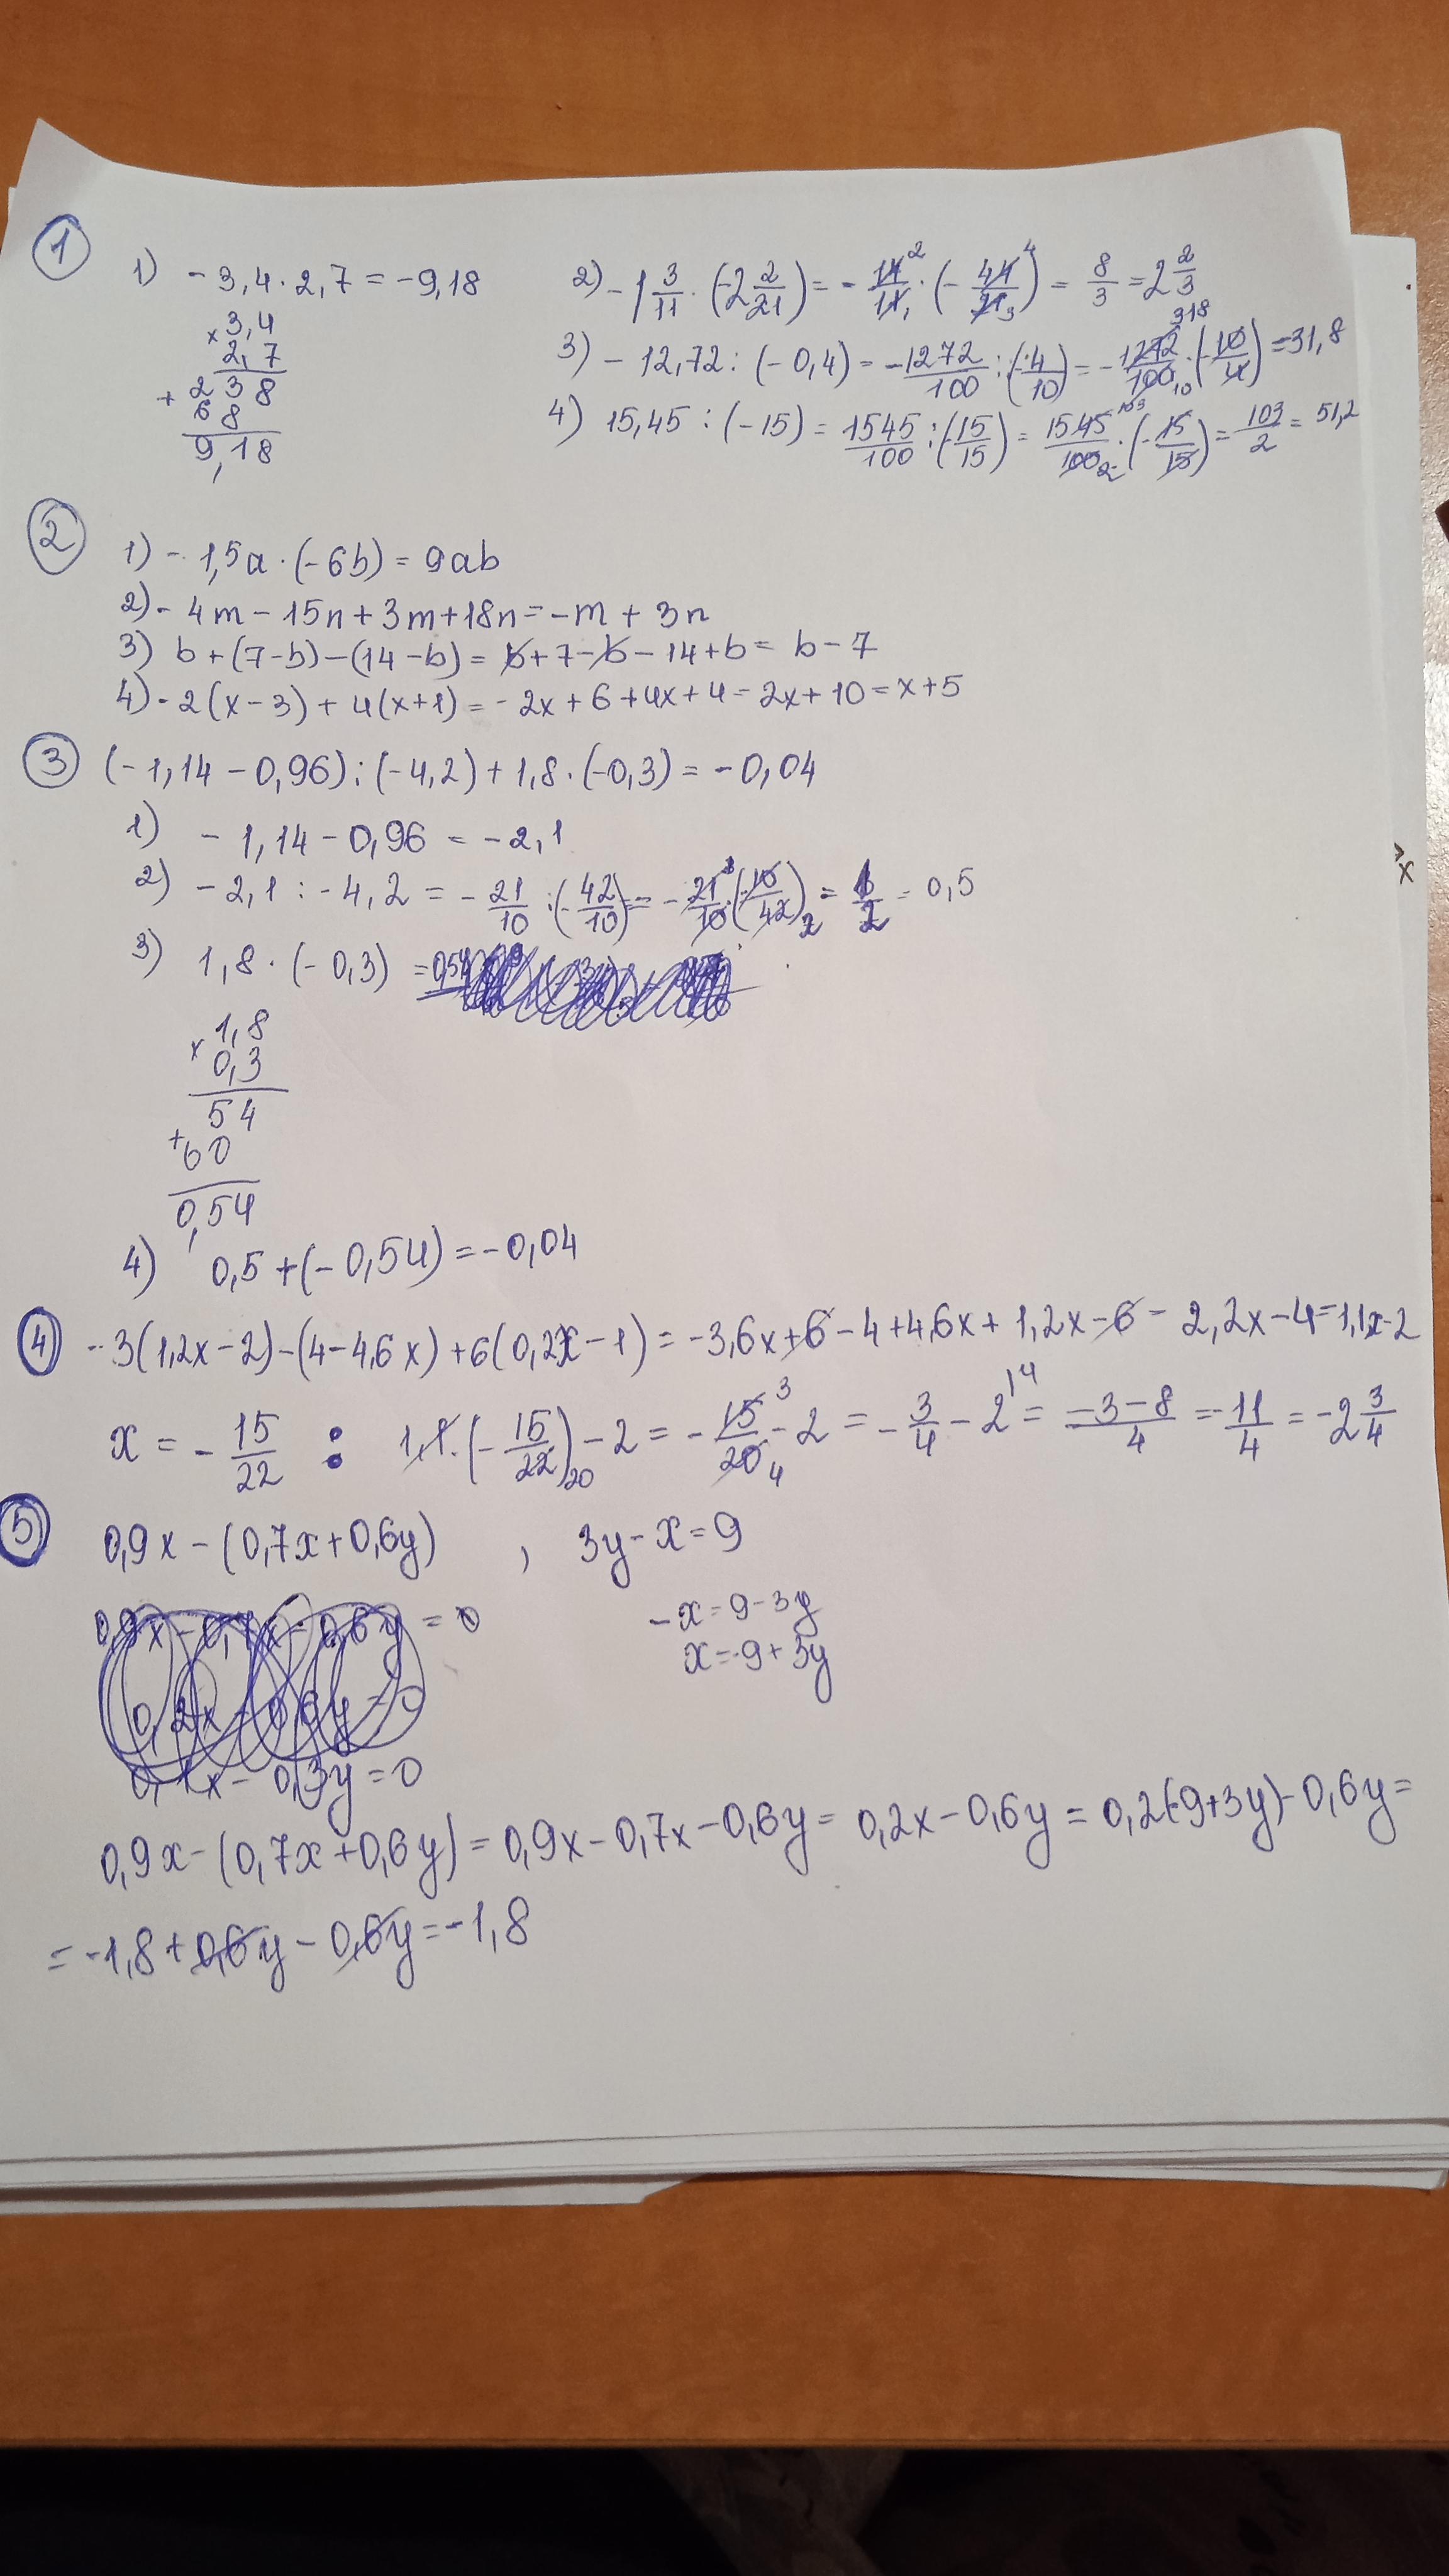 1
1) - 3,4 · 2,7 = - 9,18
× 3,4
2,7
+ 238
68
9,18
2) - 1 3/11 · (-2 2/21) = - 14/11 · (- 44/21) = 8/3 = 2 2/3
3) - 12,72 : (- 0,4) = - 1272/100 : (- 4/10) = - 1272/100 · (- 10/4) = 31,8
4) 15,45 : (- 15) = 1545/100 : (- 15/15) = 1545/100 · (- 15/15) = 103/2 = 51,2
2
1) - 1,5a · (- 6b) = 9ab
2) - 4m - 15n + 3m + 18n = - m + 3n
3) b + (7 - b) - (14 - b) = b + 7 - b - 14 + b = b - 7
4) - 2(x - 3) + 4(x + 1) = - 2x + 6 + 4x + 4 = 2x + 10 = x + 5
3 (- 1,14 - 0,96) : (- 4,2) + 1,8 · (- 0,3) = - 0,04
1) - 1,14 - 0,96 = - 2,1
2) - 2,1 : - 4,2 = - 21/10 : (- 42/10) = - 21/10 · (- 10/42) = 1/2 = 0,5
3) 1,8 · (- 0,3) = 0,54
× 1,8
0,3
54
+ 60
0,54
4) 0,5 + (- 0,54) = - 0,04
4 - 3(1,2x - 2) - (4 - 4,6x) + 6(0,2x - 1) = - 3,6x + 6 - 4 + 4,6x + 1,2x - 6 = 2,2x - 4 = 1,1x - 2
x = - 15/22 : 1,1 · (- 15/22) - 2 = - 15/20 - 2 = - 3/4 - 2 = - 3 - 8/4 = - 11/4 = - 2 3/4
5 0,9x - (0,7x + 0,6y) , 3y - x = 9
0,9x - 0,7x - 0,6y = 0
- x = 9 - 3y
x = - 9 + 3y
0,2x - 0,6y = 0
0,1x - 0,3y = 0
0,9x - (0,7x + 0,6y) = 0,9x - 0,7x - 0,6y = 0,2x - 0,6y = 0,2(-9 + 3y) - 0,6y =
= - 1,8 + 0,6y - 0,6y = - 1,8